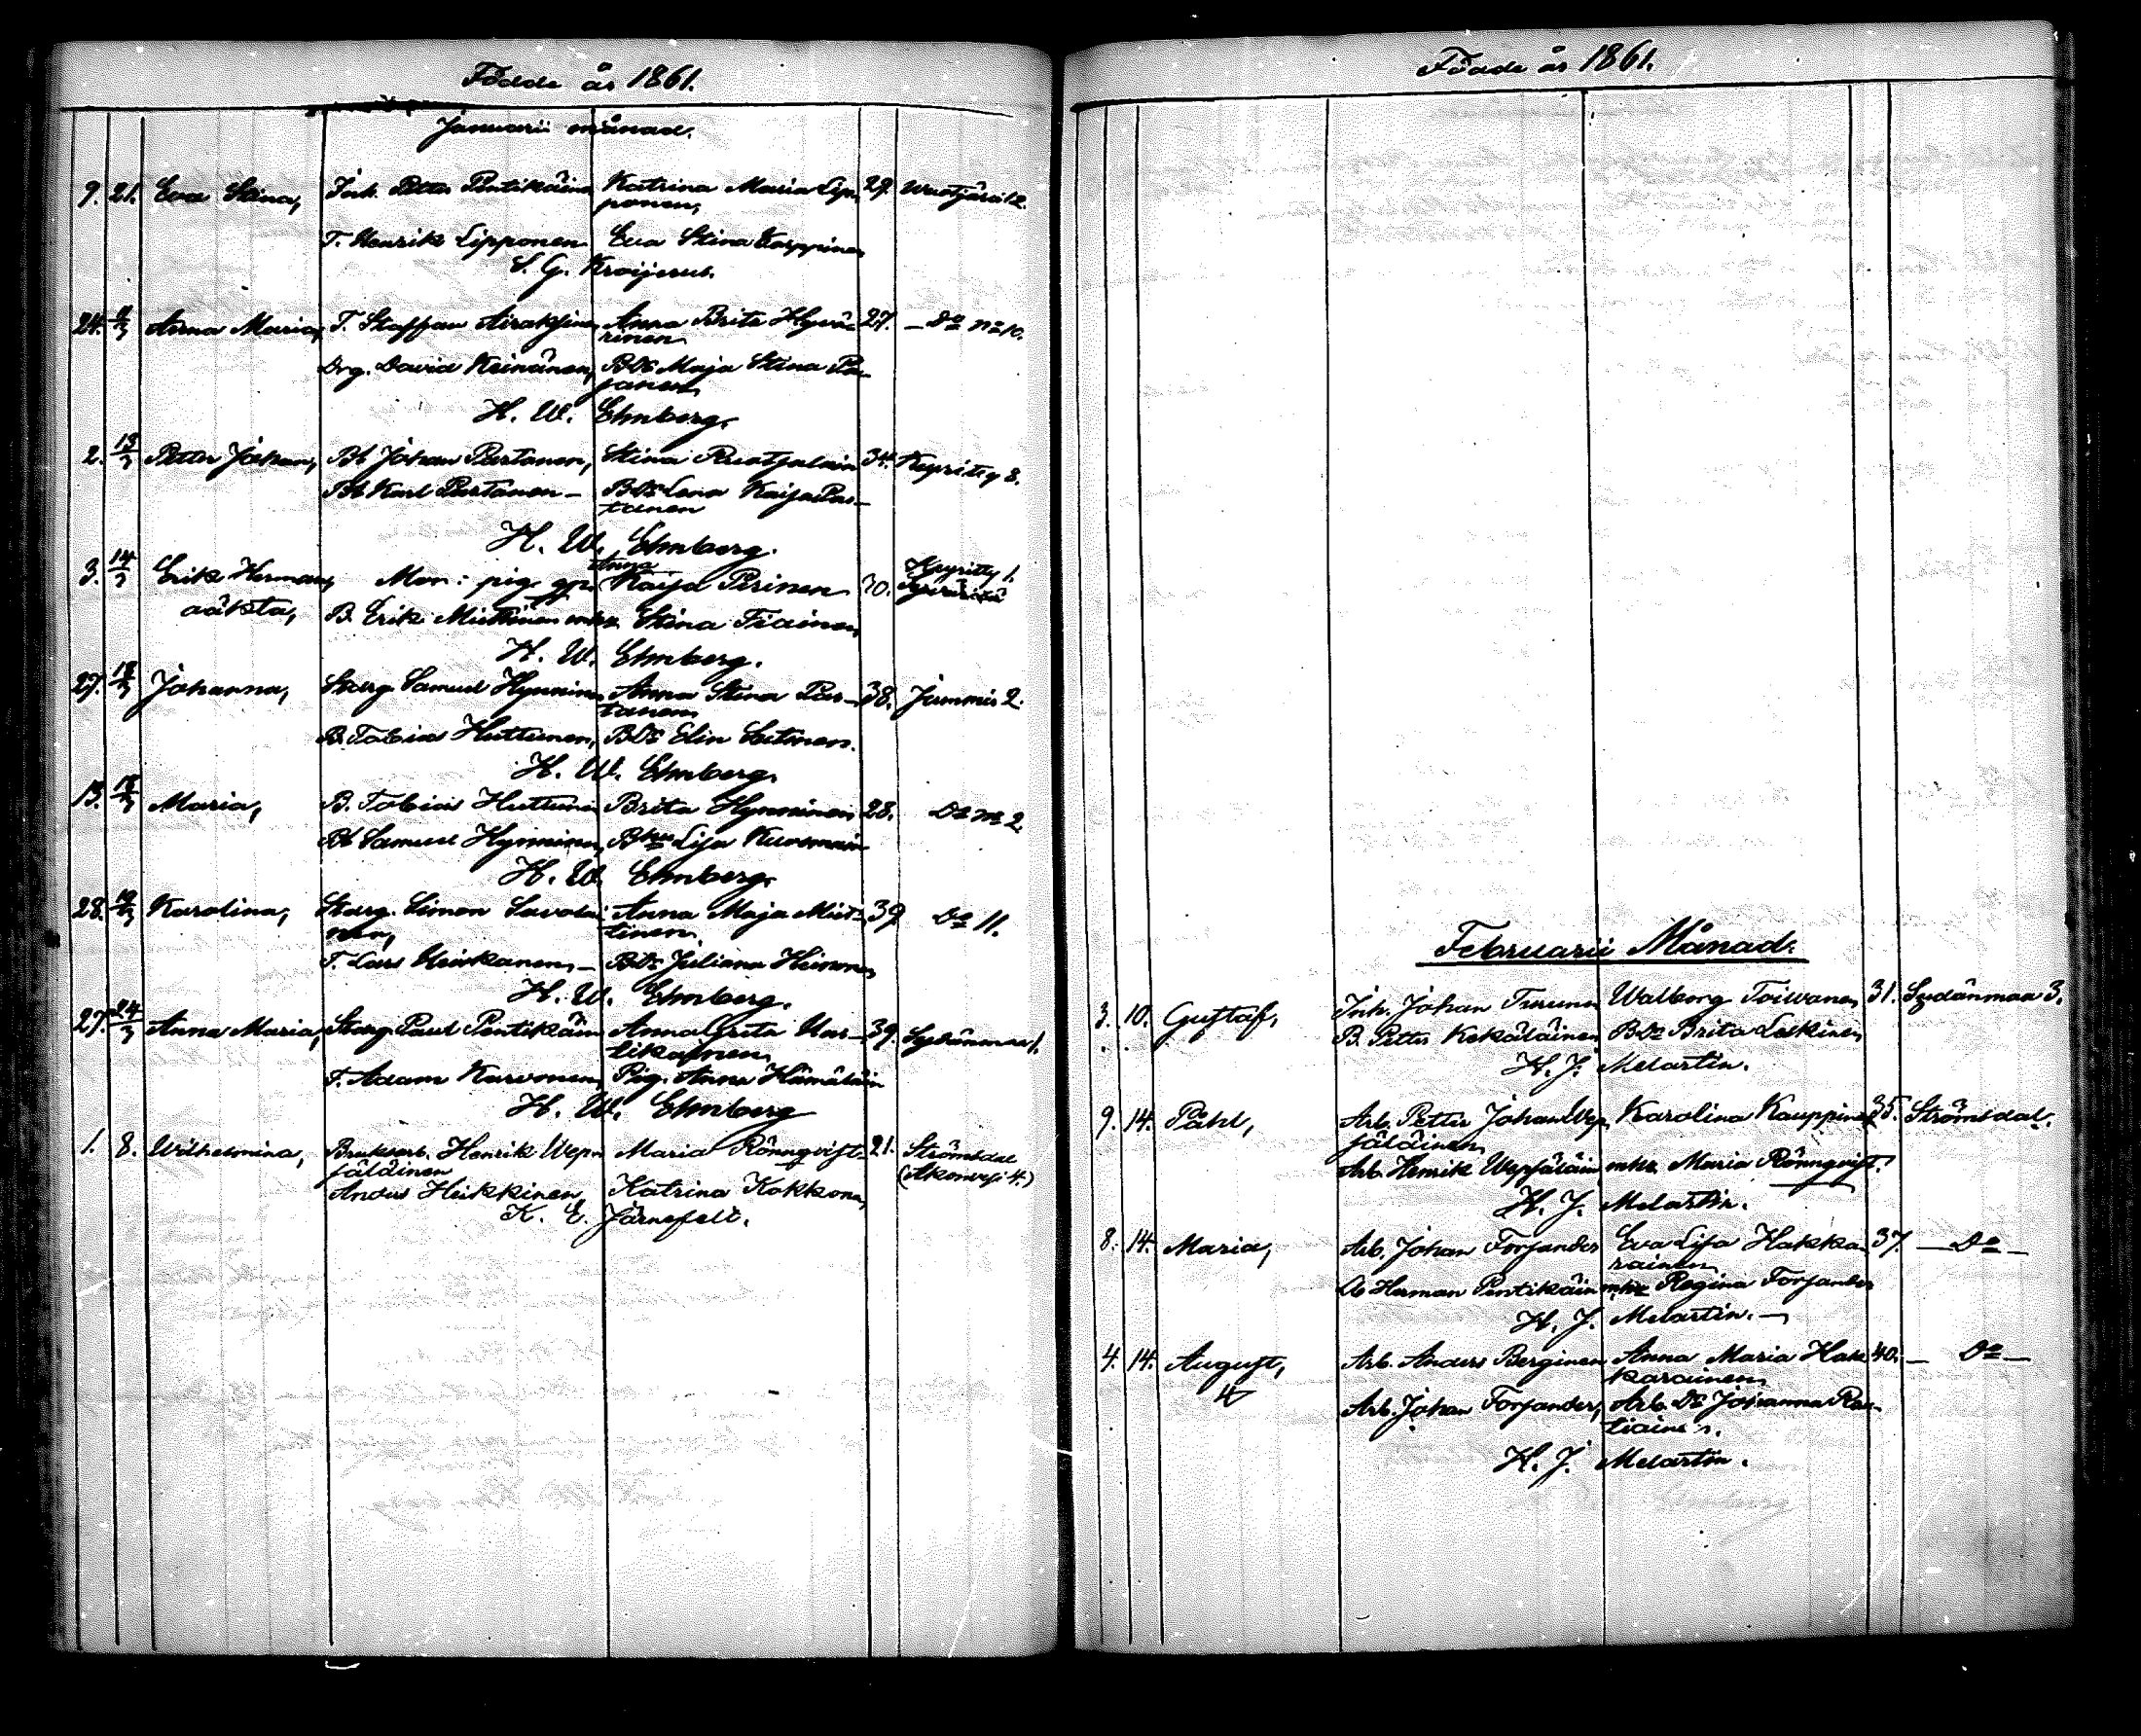 Födde år 1861.
Januarii månad.
9. 21. Eva Stina, Inh. Petter Pentikäinen Katrina Maria Lip- 29. Wuotjärvi 2.
ponen,
T. Henrik Lipponen Eva Stina Karppinen
S. G. Kroijerus.
24. 3 Anna Maria, T. Staffan Airaksinen Anna Brita Hyvä- 27. — Do No 10.
rinen
Drg. David Keinänen, BDr Maja Stina Pa-
janen
H. W. Ehnberg.
2. 13/3 Petter Johan, Bd Johan Partanen, Stina Ruotsalain 34. Keyrity 8.
Bd Karl Partanen — BDr Lena Kaisa Par-
tanen
H. W. Ehnberg.
3. 14/3 Erik Herman, Mor: pig. Anna Kaija Pirinen 30. Keyritty 1.
oäkta, B. Erik Miettinen mhu Stina Tiainen,
H. W. Ehnberg.
27. 18/3 Johanna, Starg. Samuel Hynninen Anna Stina Par- 38. Jummis 2.
tanen
B. Tobias Huttunen, BDr Elin
H. W. Ehnberg.
13. 18/3 Maria, B. Tobias Huttunen Brita Hynninen 28. Do No 2.
Bd Samuel Hynninen, Bhu Lisa
H. W. Ehnberg.
28. 19/3 Karolina, Starg. Simon Savolai- Anna Maja Miet- 39 Do 11.
nen, tinen
T. Lars — BDr Juliana
H. W. Ehnberg.
27. 24/3 Anna Maria, Starg. Paul Pentikäin Anna Greta Var- 39. Sydänmaa 1.
tikainen
T. Adam Karvonen, Pig. Anna Hämäläin
H. W. Ehnberg
1. 8. Wilhelmina, Bruksarb. Henrik Wep- Maria Rönnqvist 21. Strömsdal
säläinen (Akonvesi 4.)
Anders Heikkinen, Katrina Kokkonen,
K. E. Järnefelt.
Födde år 1861.
Februarii Månad.
3. 10. Gustaf, Inh. Johan Turunen Walborg Toiwanen 31. Sydänmaa 3.
B. Petter Kekäläinen BDr Brita Leskinen
H. J. Melartin.
9. 14. Påhl, Arb. Petter Johan Wep- Karolina Kauppinen 35. Strömsdal.
säläinen
Arb. Henrik Wepsäläin mhu Maria Rönnqvist.
H. J. Melartin.
8. 14. Maria, Arb. Johan Forsander Eva Lisa Hakka- 37. — Do —
rainen
Herman Pentikäin mhu Regina Forsander
H. J. Melartin.
4. 14. August, Arb. Anders Berginen Anna Maria Hak- 40. — Do —
karainen
Arb. Johan Forsander, Arb. Dr Johanna Rau-
tiainen.
H. J. Melartin.